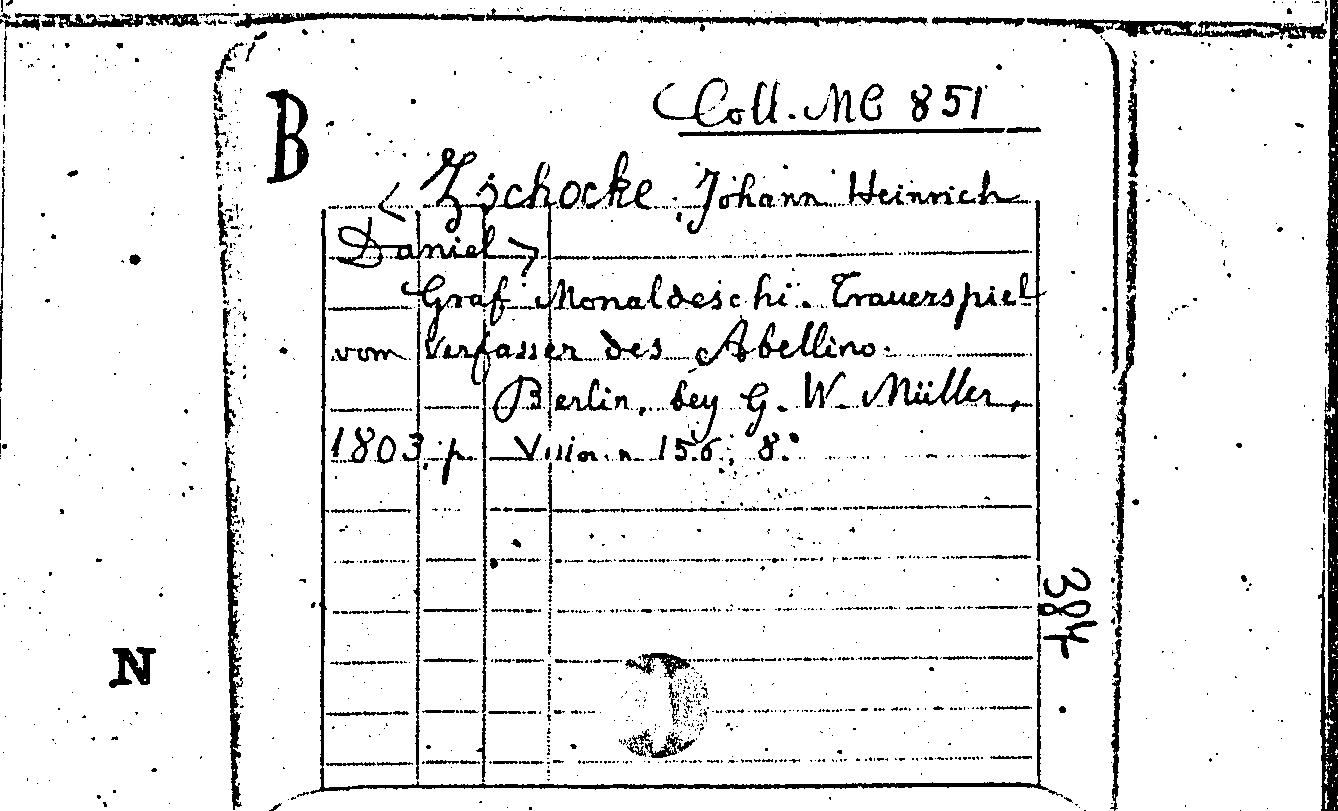 Coll. MC 851
B
< Zschocke, Johann Heinrich
Daniel >
Graf Monaldeschi. Trauerspiel
vom Verfasser des Abellino.
Berlin, bey G. W. Müller,
1803. p. 156, 8°
384
N